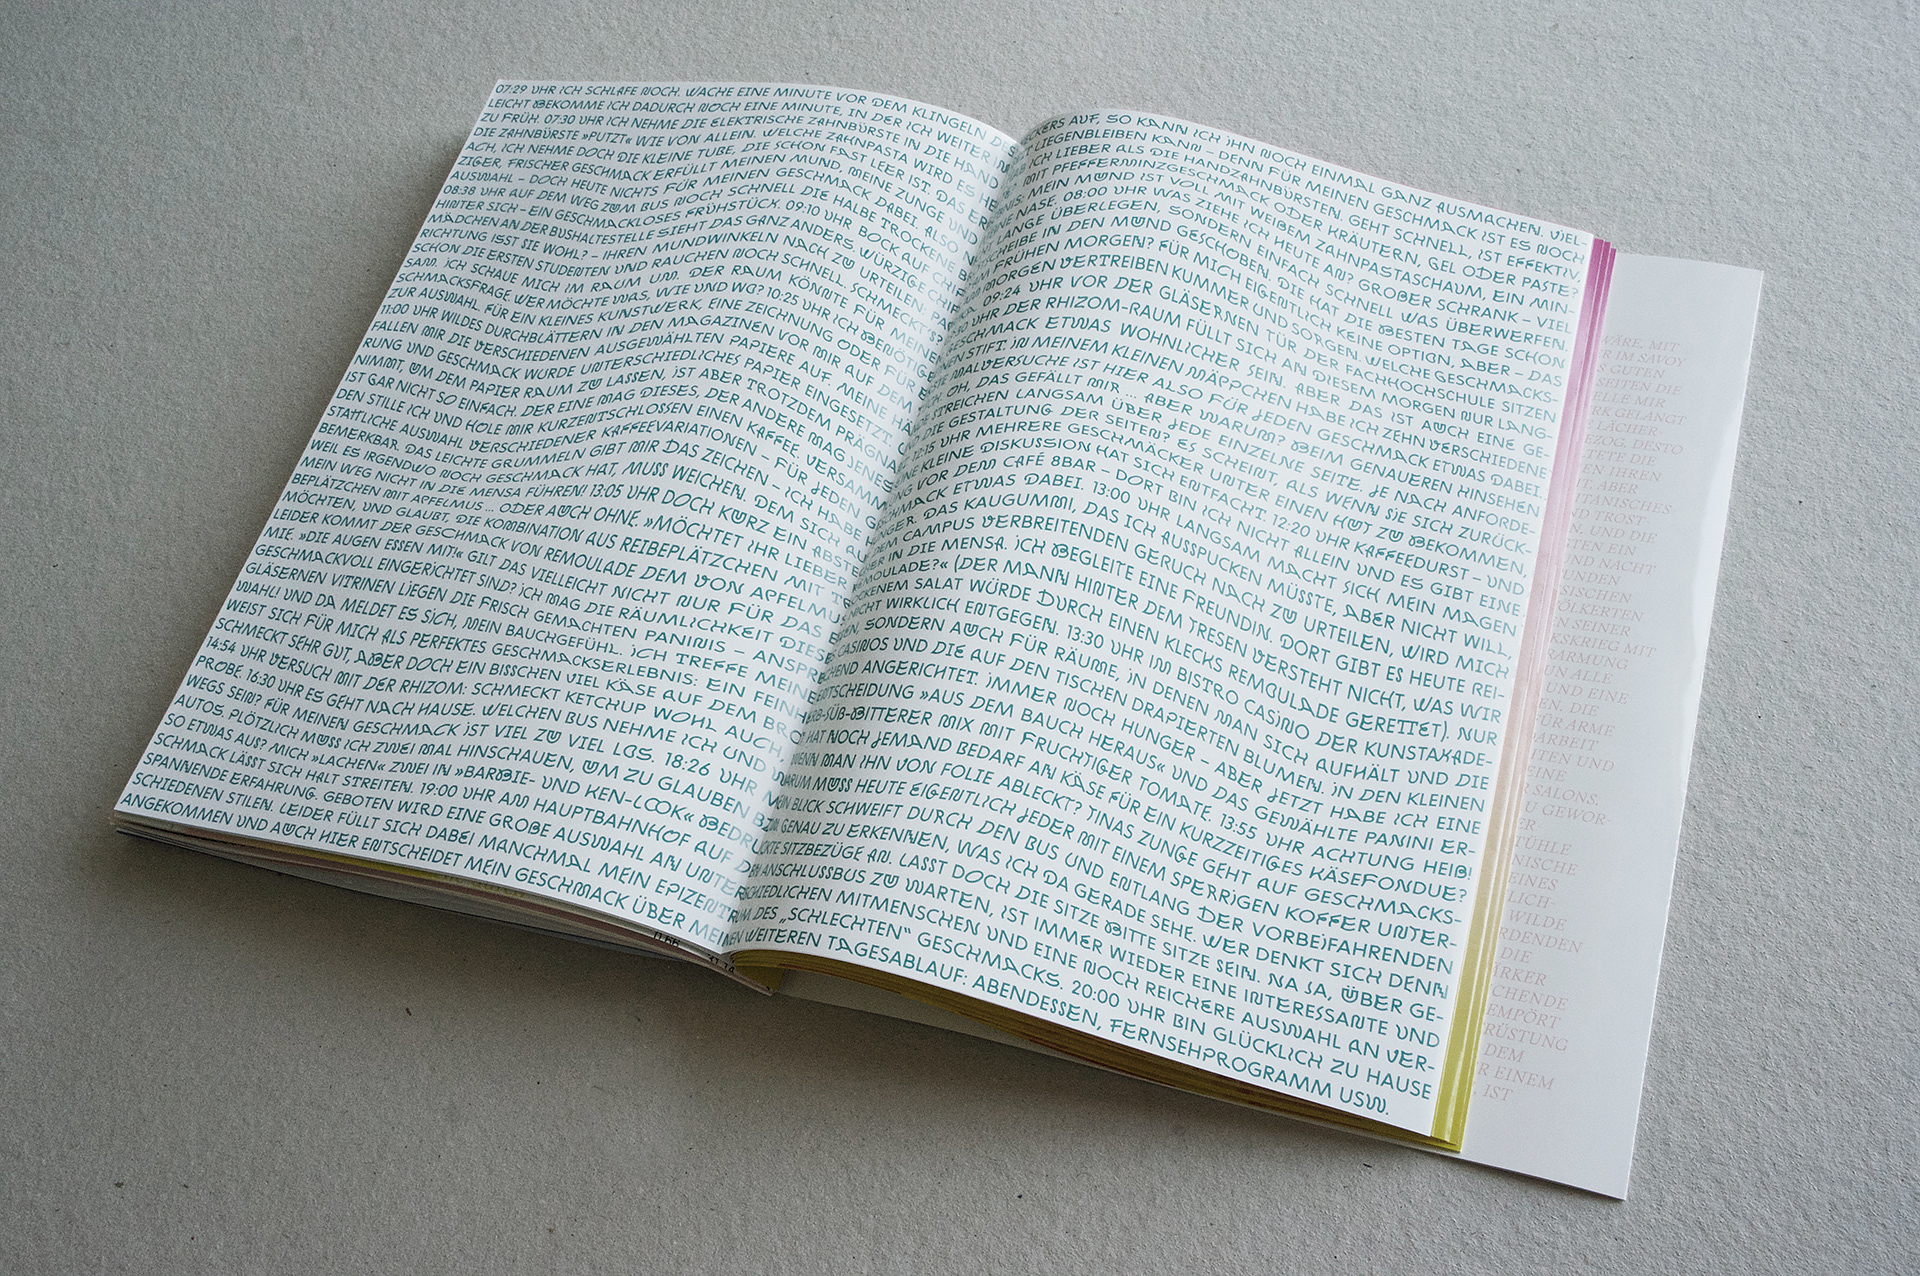 07:29 UHR ICH SCHLAFE NOCH. WACHE EINE MINUTE VOR DEM KLINGELN DES WECKERS AUF, SO KANN ICH IHN NOCH EINMAL GANZ AUSMACHEN. VIEL-
LEICHT BEKOMME ICH DADURCH NOCH EINE MINUTE, IN DER ICH WEITER LIEGENBLEIBEN KANN – DENN FÜR MEINEN GESCHMACK IST ES NOCH
ZU FRÜH. 07:30 UHR ICH NEHME DIE ELEKTRISCHE ZAHNBÜRSTE IN DIE HAND ICH LIEBER ALS DIE HANDZAHNBÜRSTEN. GEHT SCHNELL, IST EFFEKTIV,
DIE ZAHNBÜRSTE »PUTZT« WIE VON ALLEIN. WELCHE ZAHNPASTA WIRD ES MIT PFEFFERMINZGESCHMACK ODER KRÄUTERN, GEL ODER PASTE?
ACH, ICH NEHME DOCH DIE KLEINE TUBE, DIE SCHON FAST LEER IST. DAS ERGEBNIS: MEIN MUND IST VOLL MIT WEIßEM ZAHNPASTASCHAUM, EIN MIN-
ZIGER, FRISCHER GESCHMACK ERFÜLLT MEINEN MUND, MEINE ZUNGE UND MEINE NASE. 08:00 UHR WAS ZIEHE ICH HEUTE AN? GROßER SCHRANK – VIEL
AUSWAHL – DOCH HEUTE NICHTS FÜR MEINEN GESCHMACK DABEI. ALSO LANGE ÜBERLEGEN, SONDERN EINFACH SCHNELL WAS ÜBERWERFEN.
08:38 UHR AUF DEM WEG ZUM BUS NOCH SCHNELL DIE HALBE TROCKENE BROTSCHEIBE IN DEN MUND GESCHOBEN. DIE HAT DIE BESTEN TAGE SCHON
HINTER SICH – EIN GESCHMACKLOSES FRÜHSTÜCK. 09:10 UHR BOCK AUF CHIPS AM FRÜHEN MORGEN? FÜR MICH EIGENTLICH KEINE OPTION, ABER – DAS
MÄDCHEN AN DER BUSHALTESTELLE SIEHT DAS GANZ ANDERS. WÜRZIGE CHIPS AM MORGEN VERTREIBEN KUMMER UND SORGEN. WELCHE GESCHMACKS-
RICHTUNG ISST SIE WOHL? – IHREN MUNDWINKELN NACH ZU URTEILEN: 09:24 UHR VOR DER GLÄSERNEN TÜR DER FACHHOCHSCHULE SITZEN
SCHON DIE ERSTEN STUDENTEN UND RAUCHEN NOCH SCHNELL. SCHMECKT'S? 09:30 UHR DER RHIZOM-RAUM FÜLLT SICH AN DIESEM MORGEN NUR LANG-
SAM. ICH SCHAUE MICH IM RAUM UM. DER RAUM KÖNNTE FÜR MEINEN GESCHMACK ETWAS WOHNLICHER SEIN. ABER DAS IST AUCH EINE GE-
SCHMACKSFRAGE WER MÖCHTE WAS, WIE UND WO? 10:25 UHR ICH BENÖTIGE EINEN STIFT. IN MEINEM KLEINEN MÄPPCHEN HABE ICH ZEHN VERSCHIEDENE
ZUR AUSWAHL. FÜR EIN KLEINES KUNSTWERK, EINE ZEICHNUNG ODER FÜR ERSTE MALVERSUCHE IST HIER ALSO FÜR JEDEN GESCHMACK ETWAS DABEI.
11:00 UHR WILDES DURCHBLÄTTERN IN DEN MAGAZINEN VOR MIR AUF DEM TISCH. OH, DAS GEFÄLLT MIR ... ABER WARUM? BEIM GENAUEREN HINSEHEN
FALLEN MIR DIE VERSCHIEDENEN AUSGEWÄHLTEN PAPIERE AUF. MEINE HÄNDE STREICHEN LANGSAM ÜBER JEDE EINZELNE SEITE. JE NACH ANFORDE-
RUNG UND GESCHMACK WURDE UNTERSCHIEDLICHES PAPIER EINGESETZT. DIE GESTALTUNG DER SEITEN? ES SCHEINT, ALS WENN SIE SICH ZURÜCK-
NIMMT, UM DEM PAPIER RAUM ZU LASSEN, IST ABER TROTZDEM PRÄGNANT. 12:15 UHR MEHRERE GESCHMÄCKER UNTER EINEN HUT ZU BEKOMMEN,
IST GAR NICHT SO EINFACH. DER EINE MAG DIESES, DER ANDERE MAG JENES. EINE KLEINE DISKUSSION HAT SICH ENTFACHT. 12:20 UHR KAFFEEDURST – UND
DEN STILLE ICH UND HOLE MIR KURZENTSCHLOSSEN EINEN KAFFEE. VERSAMMLUNG VOR DEM CAFÉ 8BAR – DORT BIN ICH NICHT ALLEIN UND ES GIBT EINE
STATTLICHE AUSWAHL VERSCHIEDENER KAFFEEVARIATIONEN – FÜR JEDEN GESCHMACK ETWAS DABEI. 13:00 UHR LANGSAM MACHT SICH MEIN MAGEN
BEMERKBAR. DAS LEICHTE GRUMMELN GIBT MIR DAS ZEICHEN – ICH HABE HUNGER. DAS KAUGUMMI, DAS ICH AUSSPUCKEN MÜSSTE, ABER NICHT WILL,
WEIL ES IRGENDWO NOCH GESCHMACK HAT, MUSS WEICHEN. DEM SICH AUF DEM CAMPUS VERBREITENDEN GERUCH NACH ZU URTEILEN, WIRD MICH
MEIN WEG NICHT IN DIE MENSA FÜHREN! 13:05 UHR DOCH KURZ EIN ABSTECHER IN DIE MENSA. ICH BEGLEITE EINE FREUNDIN. DORT GIBT ES HEUTE REI-
BEPLÄTZCHEN MIT APFELMUS ... ODER AUCH OHNE. »MÖCHTET IHR LIEBER REMOULADE?« (DER MANN HINTER DEM TRESEN VERSTEHT NICHT, WAS WIR
MÖCHTEN, UND GLAUBT, DIE KOMBINATION AUS REIBEPLÄTZCHEN MIT TROCKENEM SALAT WÜRDE DURCH EINEN KLECKS REMOULADE GERETTET). NUR
LEIDER KOMMT DER GESCHMACK VON REMOULADE DEM VON APFELMUS NICHT WIRKLICH ENTGEGEN. 13:30 UHR IM BISTRO CASINO DER KUNSTAKADE-
MIE. »DIE AUGEN ESSEN MIT!« GILT DAS VIELLEICHT NICHT NUR FÜR DAS ESSEN, SONDERN AUCH FÜR RÄUME, IN DENEN MAN SICH AUFHÄLT UND DIE
GESCHMACKVOLL EINGERICHTET SIND? ICH MAG DIE RÄUMLICHKEIT DIESES CASINOS UND DIE AUF DEN TISCHEN DRAPIERTEN BLUMEN. IN DEN KLEINEN
GLÄSERNEN VITRINEN LIEGEN DIE FRISCH GEMACHTEN PANINIS – ANSPRECHEND ANGERICHTET. IMMER NOCH HUNGER – ABER JETZT HABE ICH EINE
WAHL! UND DA MELDET ES SICH, MEIN BAUCHGEFÜHL. ICH TREFFE MEINE ENTSCHEIDUNG »AUS DEM BAUCH HERAUS« UND DAS GEWÄHLTE PANINI ER-
WEIST SICH FÜR MICH ALS PERFEKTES GESCHMACKSERLEBNIS: EIN FEINHERB-SÜß-BITTERER MIX MIT FRUCHTIGER TOMATE. 13:55 UHR ACHTUNG HEIß!
SCHMECKT SEHR GUT, ABER DOCH EIN BISSCHEN VIEL KÄSE AUF DEM BROT. HAT NOCH JEMAND BEDARF AN KÄSE FÜR EIN KURZZEITIGES KÄSEFONDUE?
14:54 UHR VERSUCH MIT DER RHIZOM: SCHMECKT KETCHUP WOHL AUCH, WENN MAN IHN VON FOLIE ABLECKT? TINAS ZUNGE GEHT AUF GESCHMACKS-
PROBE. 16:30 UHR ES GEHT NACH HAUSE. WELCHEN BUS NEHME ICH UND WARUM MUSS HEUTE EIGENTLICH JEDER MIT EINEM SPERRIGEN KOFFER UNTER-
WEGS SEIN? FÜR MEINEN GESCHMACK IST VIEL ZU VIEL LOS. 18:26 UHR MEIN BLICK SCHWEIFT DURCH DEN BUS UND ENTLANG DER VORBEIFAHRENDEN
AUTOS. PLÖTZLICH MUSS ICH ZWEI MAL HINSCHAUEN, UM ZU GLAUBEN GENAU ZU ERKENNEN, WAS ICH DA GERADE SEHE. WER DENKT SICH DENN
SO ETWAS AUS? MICH »LACHEN« ZWEI IN »BARBIE- UND KEN-LOOK« BEDRUCKTE SITZBEZÜGE AN. LASST DOCH DIE SITZE BITTE SITZE SEIN. NA JA, ÜBER GE-
SCHMACK LÄSST SICH HALT STREITEN. 19:00 UHR AM HAUPTBAHNHOF AUF DEN ANSCHLUSSBUS ZU WARTEN, IST IMMER WIEDER EINE INTERESSANTE UND
SPANNENDE ERFAHRUNG. GEBOTEN WIRD EINE GROßE AUSWAHL AN UNTERSCHIEDLICHEN MITMENSCHEN UND EINE NOCH REICHERE AUSWAHL AN VER-
SCHIEDENEN STILEN. LEIDER FÜLLT SICH DABEI MANCHMAL MEIN EPIZENTRUM DES „SCHLECHTEN“ GESCHMACKS. 20:00 UHR BIN GLÜCKLICH ZU HAUSE
ANGEKOMMEN UND AUCH HIER ENTSCHEIDET MEIN GESCHMACK ÜBER MEINEN WEITEREN TAGESABLAUF: ABENDESSEN, FERNSEHPROGRAMM USW.
WÄRE. MIT
IM SAVOY
GUTEN
SEITEN DIE
MIR
GELANGT
LÄCHER
DESTO
DIE
IHREN
ABER
TROST
UND DIE
EIN
NACHT
SEINER
MIT
ALLE
UND EINE
DIE
FÜR ARME
ARBEIT
UND
SALONS.
GEWOR-
WILDE
DIE
EMPÖRT
DEM
EINEM
IST